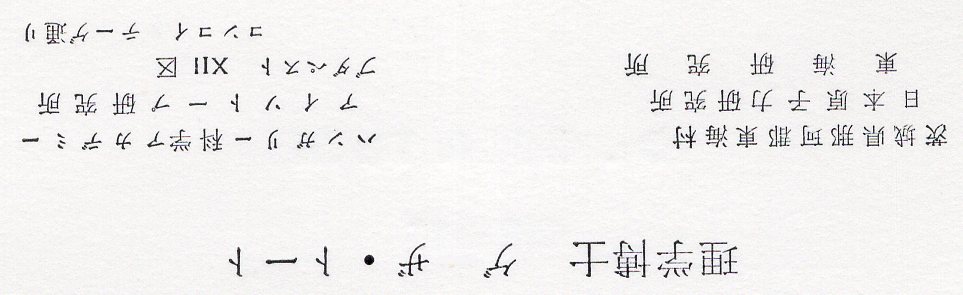 理学博士　ゲ　ザ・トート
茨城県那珂郡東海村
日本原子力研究所
東海研究所
ハンガリー科学アカデミー
アイソトープ研究所
ブダペスト　XII区
コンコイ　テーゲ通り